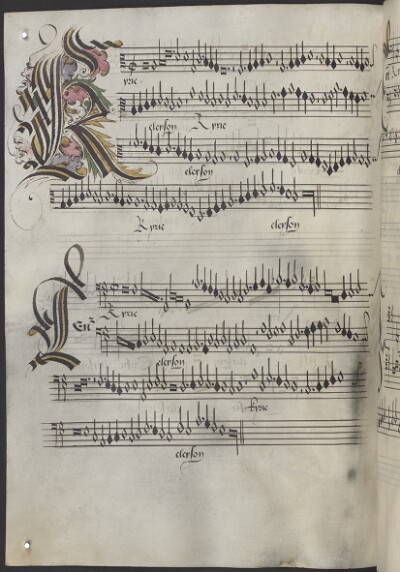 Kyrie
eleyson Kyrie
eleyson
Kyrie eleyson
Kyrie
Ten̄
eleyson
kyrie
eleyson